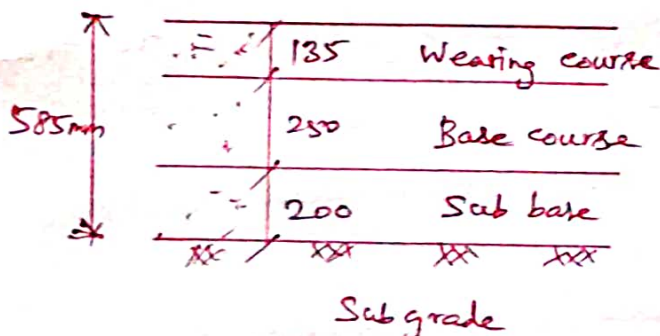 135 Wearing course
585mm
250 Base course
200 Sub base
Subgrade